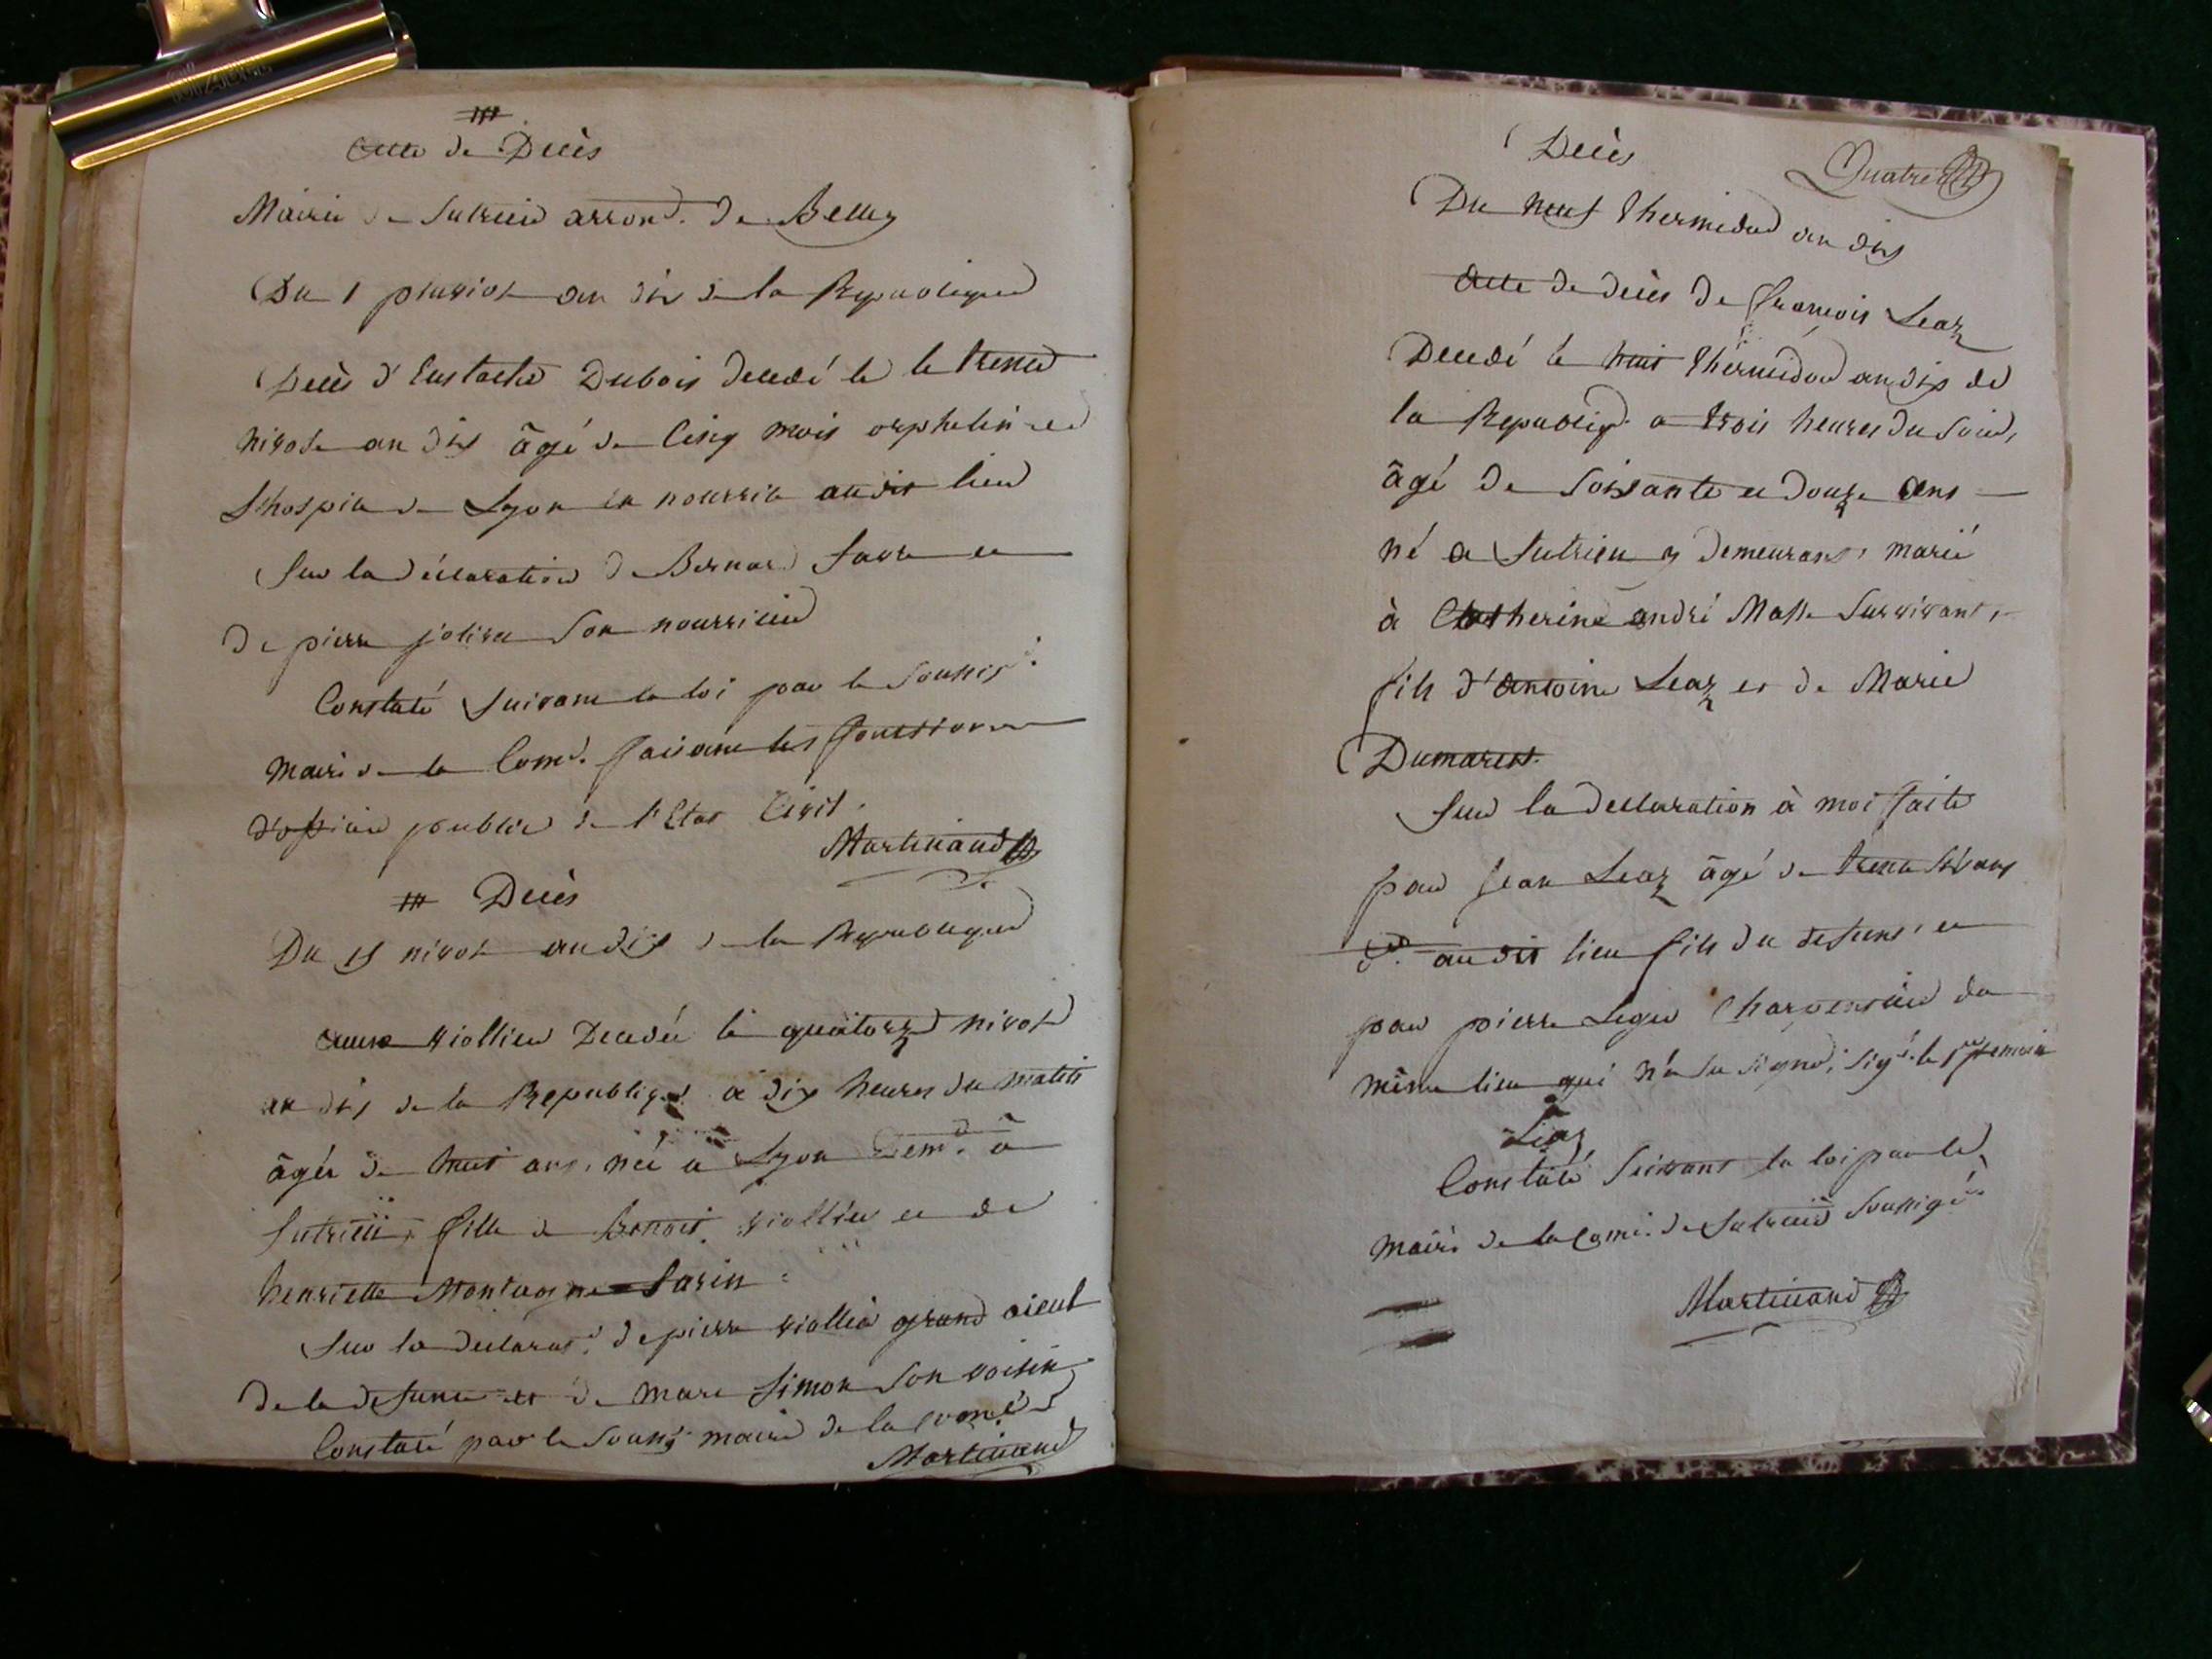 acte de Decès
Mairie de Sutrieu arrond. de Belley
Du 1 pluviose an dix de la Republique
Decès d'Eustache Dubois decedé le le trente
nivose an dix âgé de Cinq mois orphelin de
L'hospice de Lyon en nourrice audit lieu
Sur la déclaration de Bernard favre et
de pierre jolivet son nourricier
Constaté suivant la loi par le soussig.
maire de la Come. faisant les fonctions
d'officier public de l'Etat Civil.
Martinand
Decès
Du 15 nivose an dix de la Republique
anne viollier Decedée le quatorze nivose
an dix de la Republique a dix heures du matin
âgée de huit ans, née a Lyon demt. a
Sutrieu, fille de Benoit viollier et de
henriette Montagne Sarin
Sur la declarat. de pierre viollier grand aieul
de la defunte et de marc Simon son voisin
Constaté par le soussig maire de la comé
Martinand
Decès
Quatre
Du neuf thermidor an dix
acte de decès de françois Leaz
Decedé le huit thermidor an dix de
la Republiq. a trois heures du soir,
âgé de soixante et douze ans
né a Sutrieu y demeurant, marié
à Catherine andré Masse survivante,
fils d'antoine Leaz et de Marie
Dumarest.
Sur la declaration à moi faite
par jean Leaz âgé de trente six ans
dt. audit lieu fils du defunt et
par pierre Leger Charpentier du
même lieu qui n'a su signer, sigé. le 1er temoin
Leaz
Constaté suivant la loi par le
maire de la Come. de Sutrieu soussigé
Martinand